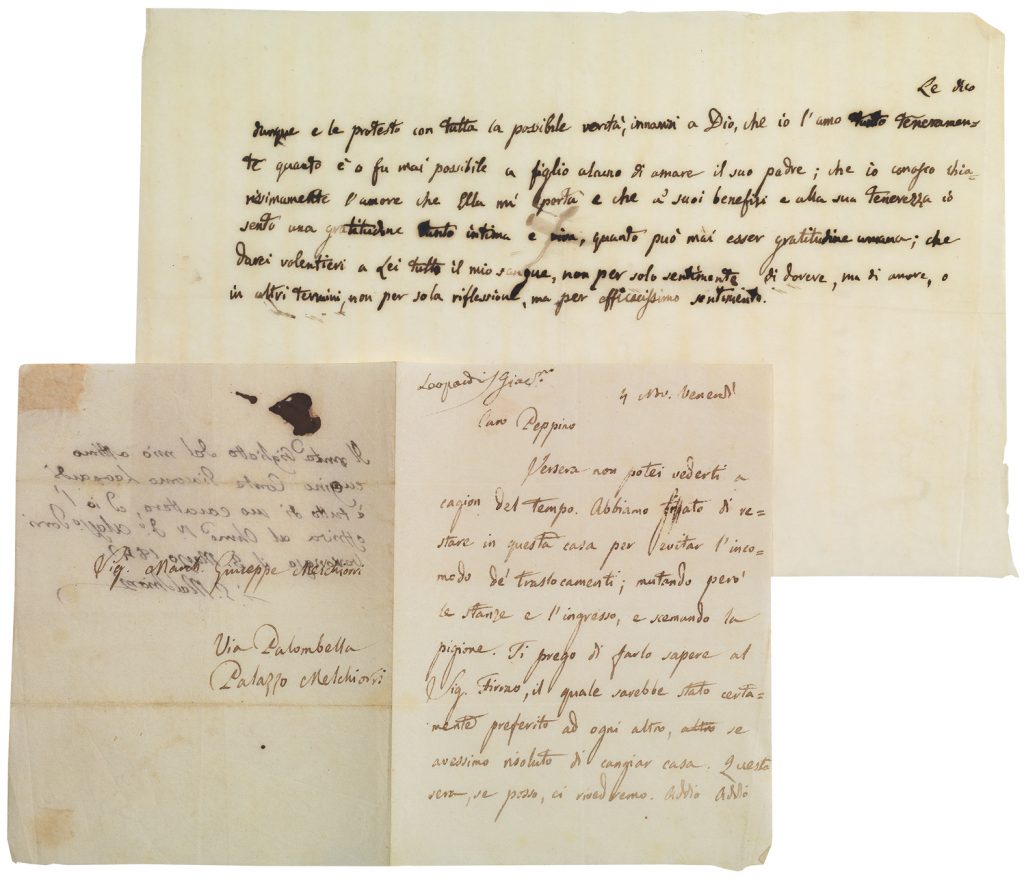 Le dico
dunque e le protesto con tutta la possibile verità, innanzi a Dio, che io l'amo tanto teneramen-
te quanto è o fu mai possibile a figlio alcuno di amare il suo padre; che io conosco chia-
rissimamente l'amore che Ella mi porta e che a' suoi benefizi e alla sua tenerezza io
sento una gratitudine tanto intima e viva, quanto può mai esser gratitudine umana; che
darei volentieri a Lei tutto il mio sangue, non per solo sentimento di dovere, ma di amore, o
in altri termini, non per sola riflessione, ma per efficacissimo sentimento.
Leopardi Giac.
4 Nov. Venerdì
Caro Peppino
Iersera non potei vederti a
cagion del tempo. Abbiamo fissato di re=
stare in questa casa per evitar l'inco=
modo de' traslocamenti; mutando però
le stanze e l'ingresso, e scemando la
pigione. Ti prego di farlo sapere al
Sig. il quale sarebbe stato certa=
mente preferito ad ogni altro, altro se
avessimo risoluto di cangiar casa. Questa
sera, se posso, ci rivedremo. Addio Addio
Sig. March. Giuseppe Melchiorri
Via Palombella
Palazzo Melchiorri
cugino Conte Giacomo Leopardi
è tutto di suo carattere, ed io l'